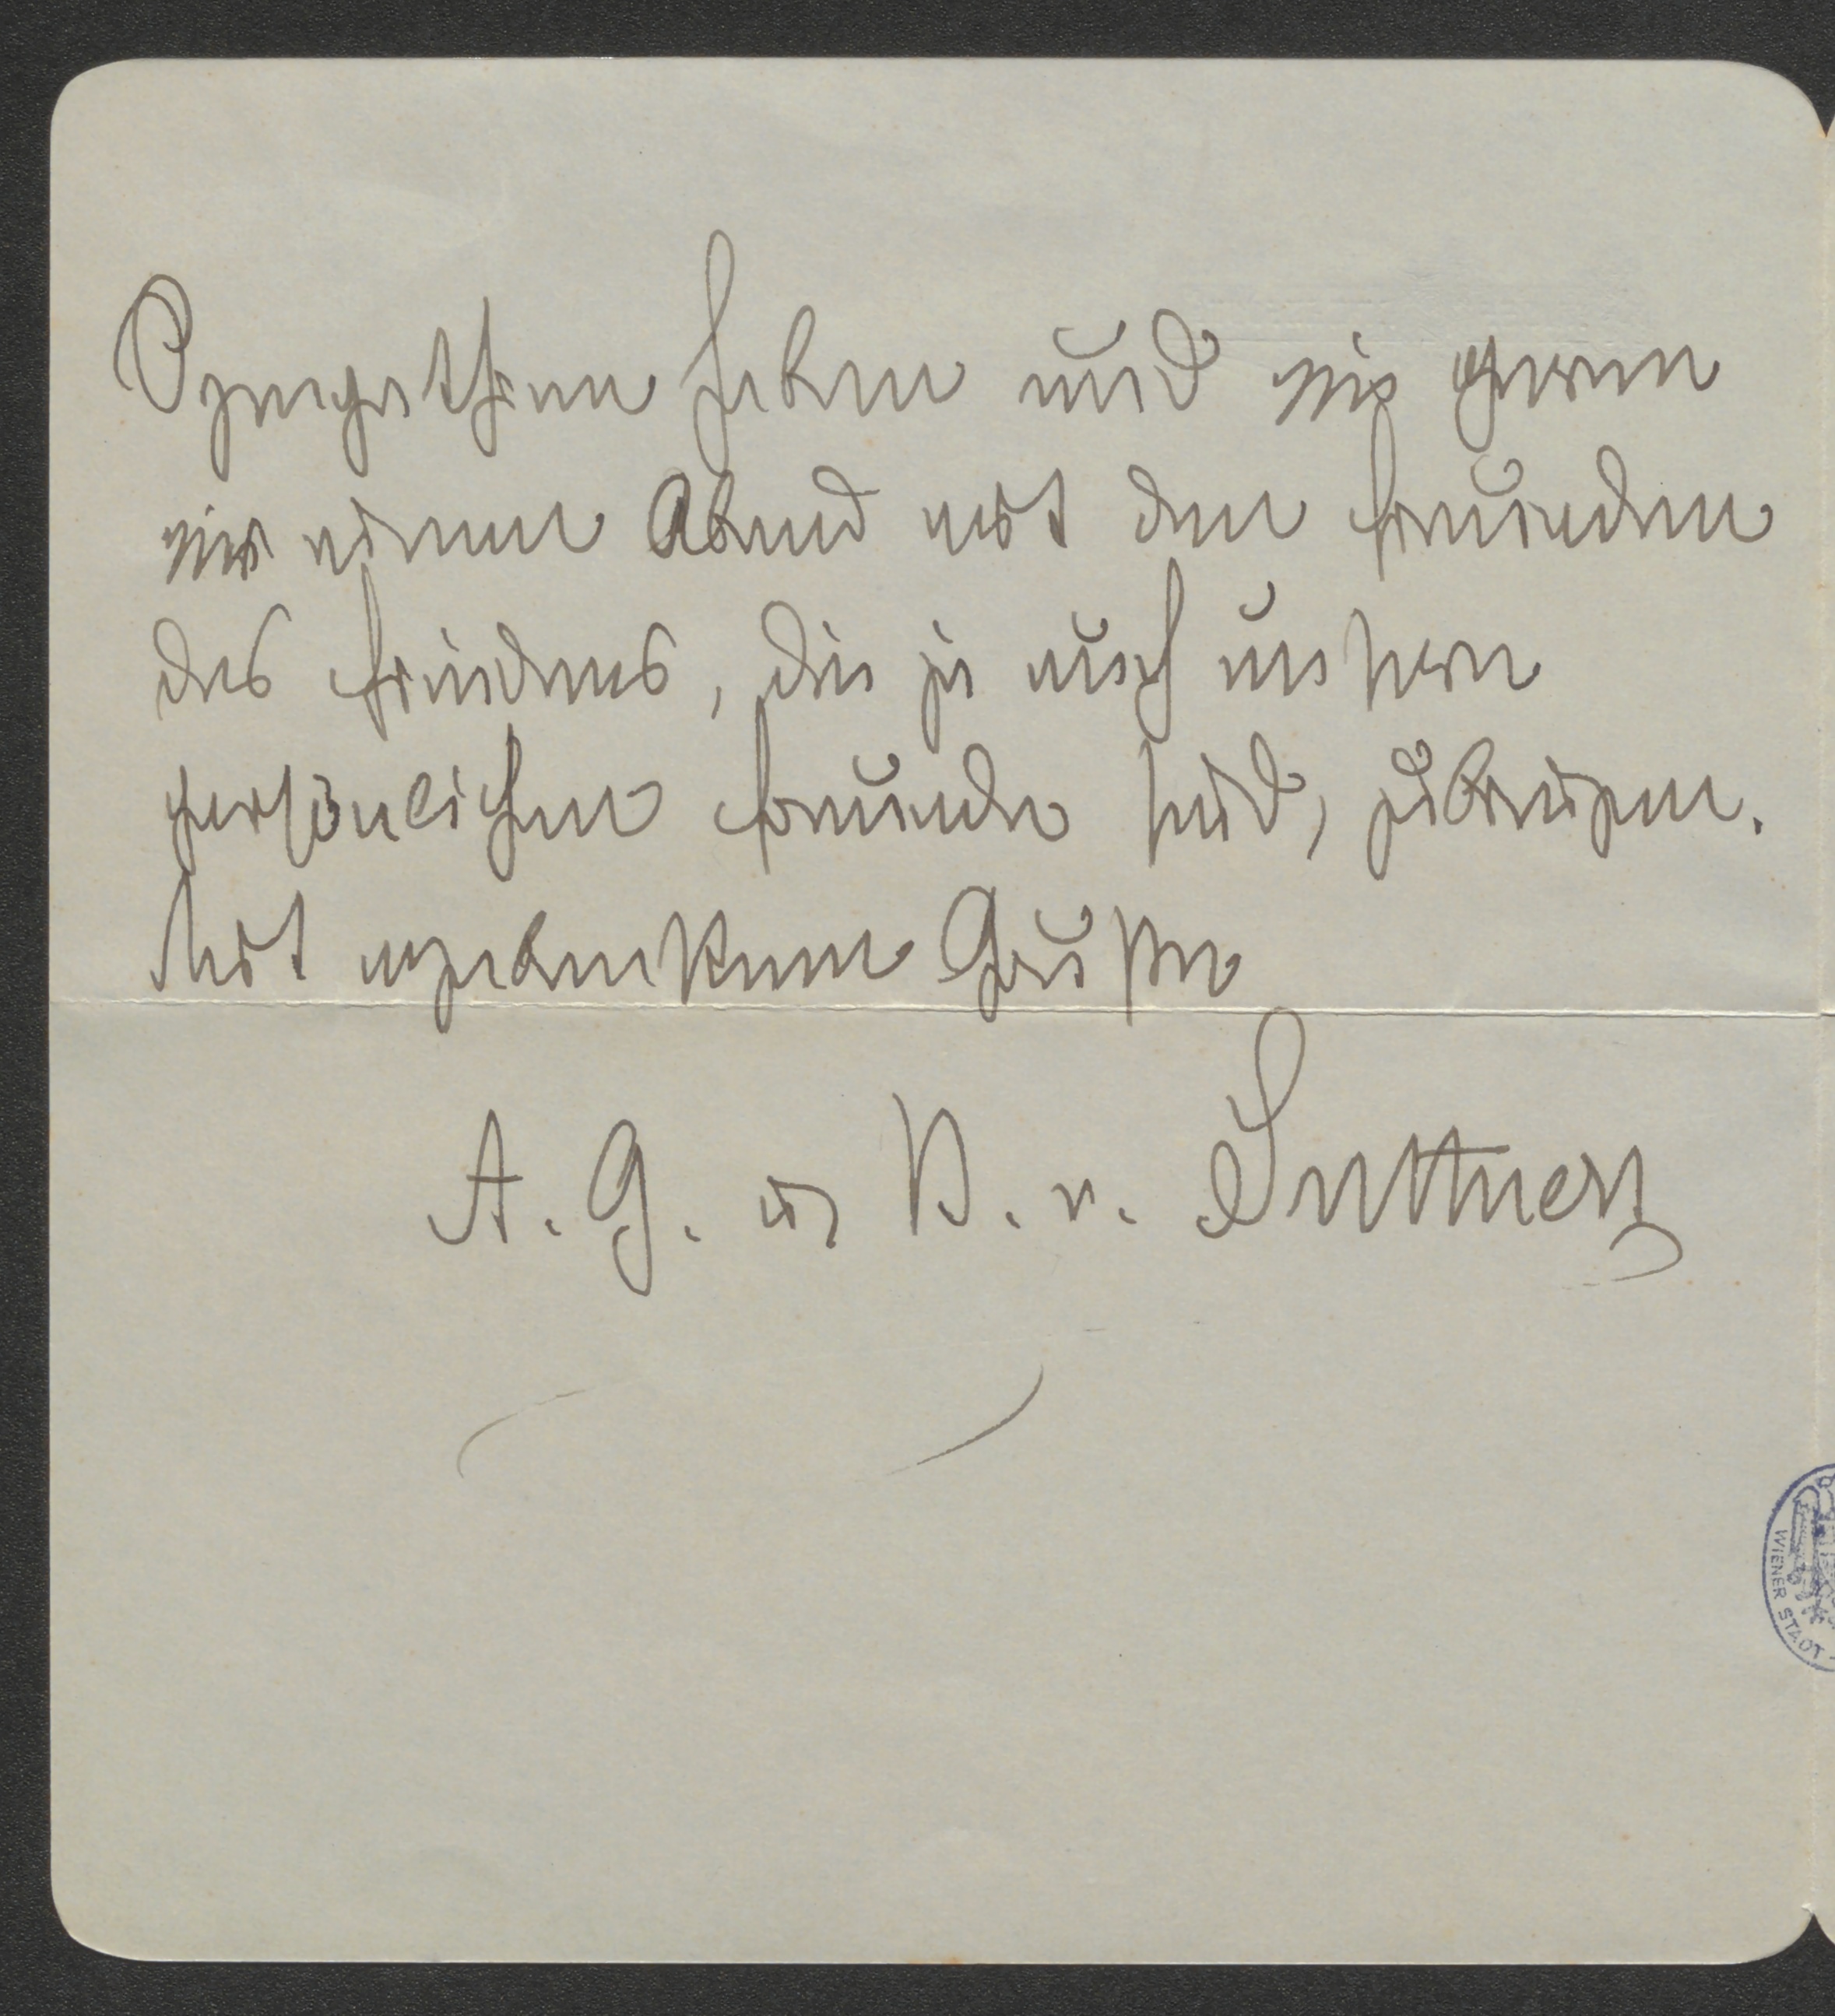 Sympathien haben und wie gerne
wir einen Abend mit den Freunden
des Friedens, die ja auch unsere
persönlichen Freunde sind, zubringen.
Mit ergebenstem Gruße
A. G. u. B. v. Suttner
WIENER STADT